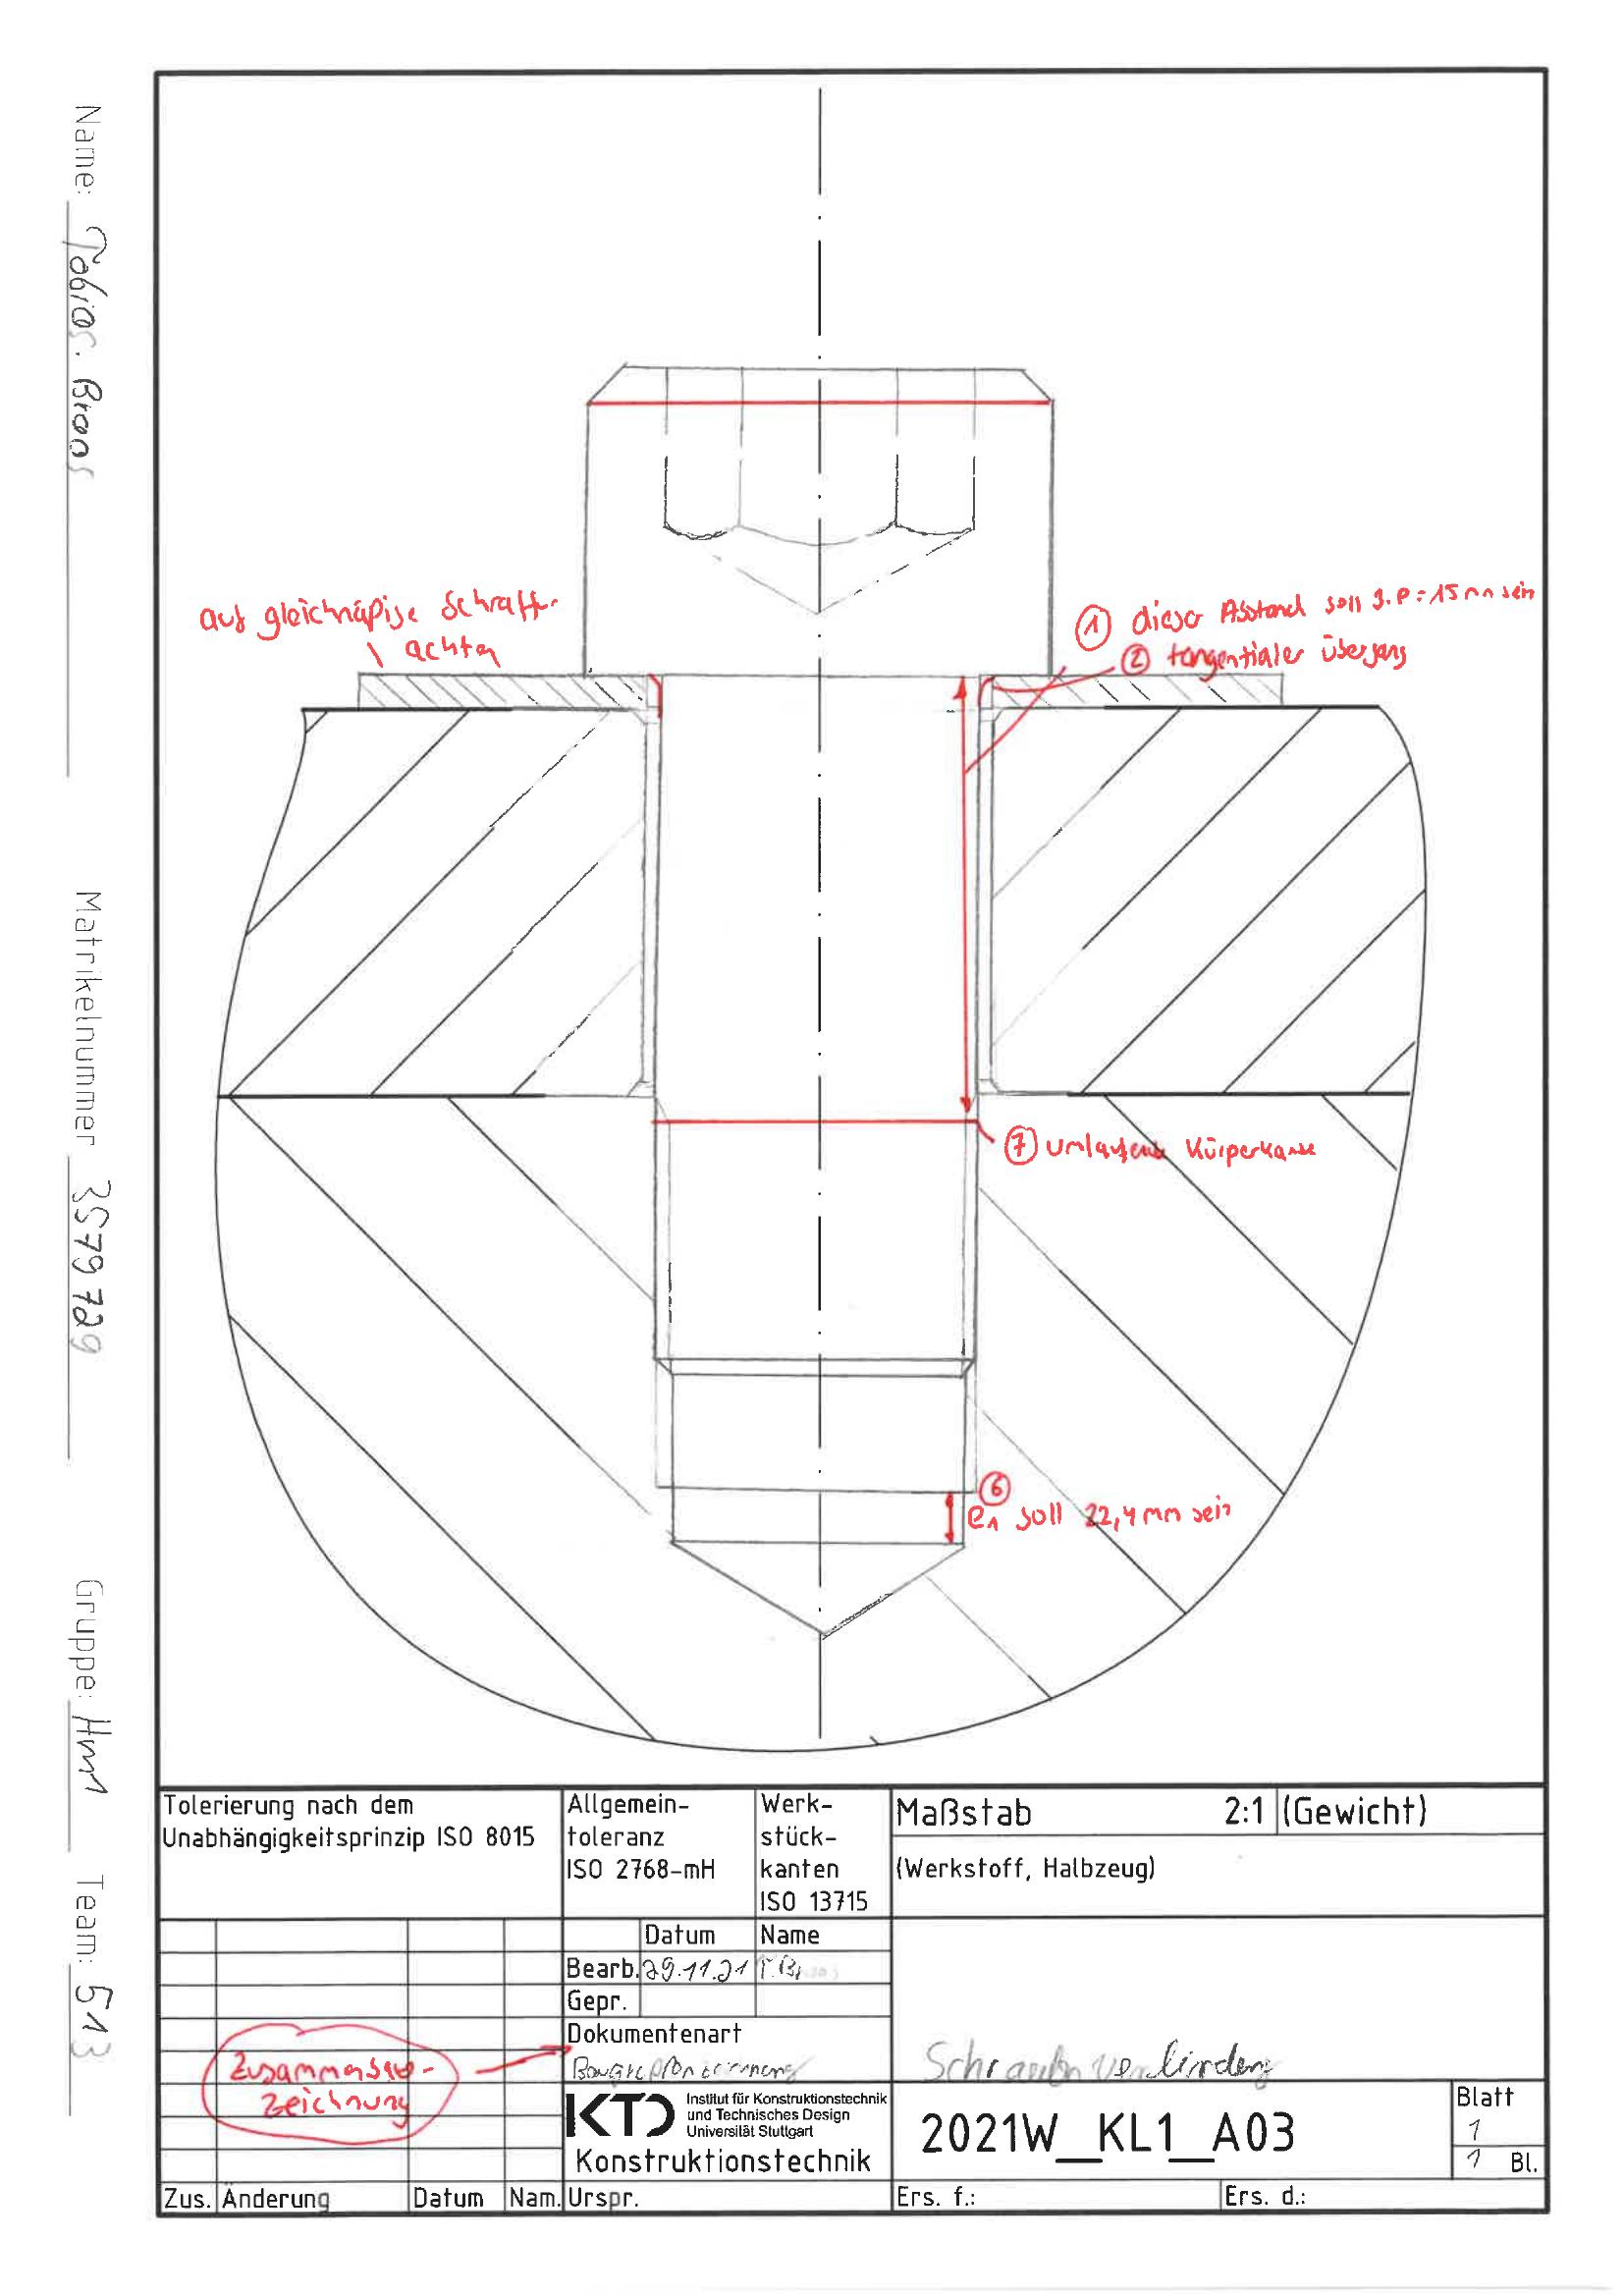 Name: Tobias Broos
Matrikelnummer 3579729
Gruppe: Hm1
Team: 513
auf gleichmäßige Schraff.
achten
① dieser Abstand soll 3.P = 15mm sein
② tangentialer übergang
⑦ umlaufende Körperkante
⑥
e₁ soll 22,4mm sein
Tolerierung nach dem
Unabhängigkeitsprinzip ISO 8015
Allgemein-
toleranz
ISO 2768-mH
Werk-
stück-
kanten
ISO 13715
Maßstab 2:1 (Gewicht)
(Werkstoff, Halbzeug)
Datum Name
Bearb. 29.11.21
Gepr.
Dokumentenart
Zusammenbau-
Zeichnung
Schraubenverbindung
KTD Institut für Konstruktionstechnik
und Technisches Design
Universität Stuttgart
Konstruktionstechnik
2021W_KL1_A03
Blatt
1
1 Bl.
Zus. Änderung Datum Nam. Urspr. Ers. f.: Ers. d.: